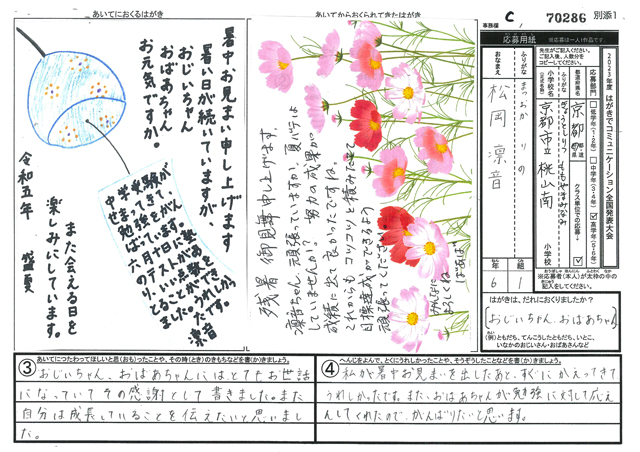 あいてにおくるはがき
暑中お見まい申し上げます
暑い日が続いていますが、
おじいちゃん
おばあちゃん
お元気ですか。
また会える日を
楽しみにしています。
令和五年
盛夏
凛音
あいてからおくられてきたはがき
残暑御見舞申し上げます。
凛音ちゃん、頑張っていますか。夏バテは
していませんか?
努力の成果が
成績に出て良かったですね。
これからもコツコツと積みたてて
目標達成ができるよう
頑張って下さいね。
事務欄
C
70286
別添1
応募用紙
※応募は一人1作品です。
2023年度 はがきでコミュニケーション全国発表大会
応募部門
低学年(1・2年)
中学年(3・4年)
高学年(5・6年)
クラス単位での応募
都道府県名
京都
ふりがな
小学校名
(正式名称)
京都市立桃山南
小学校
ふりがな
まつおか りの
おなまえ
松岡凛音
6
年
1
組
※応募者(本人)が太枠の中の
記入をしてください。
はがきは、だれにおくりましたか?
おじいちゃん、おばあちゃん
(例)ともだち、てんこうしたともだち、いとこ、
いなかのおじいさん・おばあさんなど
③ あいてにつたわってほしいと思(おも)ったことや、その時(とき)のきもちなどを書(か)きましょう。
おじいちゃん、おばあちゃんにはとてもお世話
になっていてその感謝として書きました。また
自分は成長していることを伝えたいと思いまし
た。
④ へんじをよんで、とくにうれしかったことや、そうぞうしたことなどを書(か)きましょう。
私が暑中お見まいを出したあと、すぐにかえってきて
うれしかったです。また、おばあちゃんが勉強に対して応え
んしてくれたので、がんばりたいと思います。